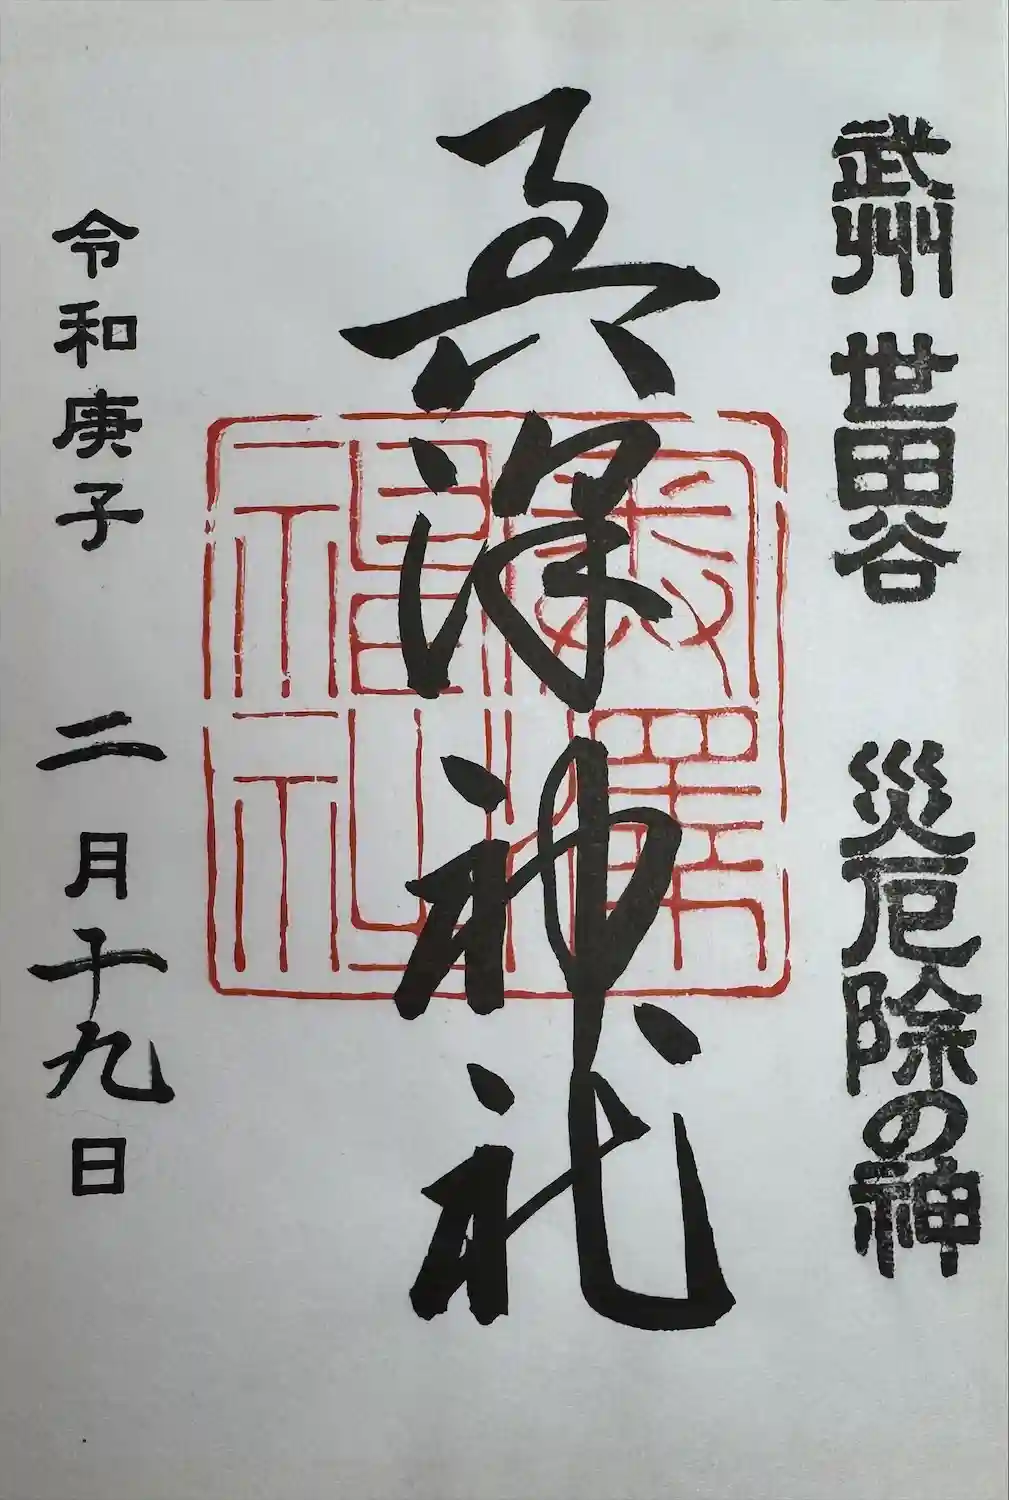 武州 世田谷 災厄除の神
奥澤神社
令和庚子 二月十九日
奥澤神社